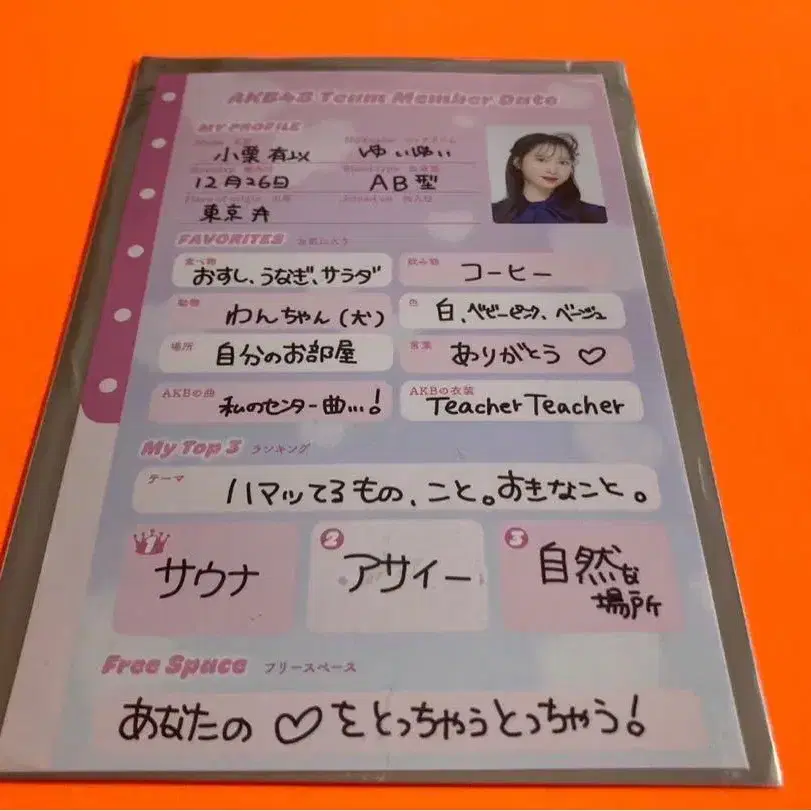 AKB48 Team Member Data
MY PROFILE
小栗有以 ゆいゆい
12月26日 AB型
東京
FAVORITES お気に入り
食べ物 おすし、うなぎ、サラダ 飲み物 コーヒー
動物 わんちゃん(犬) 色 白、ベビーピンク、ベージュ
場所 自分のお部屋 言葉 ありがとう♡
AKBの曲 私のセンター曲...! AKBの衣装 Teacher Teacher
My Top 3 ランキング
テーマ ハマッてるもの、こと。すきなこと。
1 サウナ 2 アサイー 3 自然な
場所
Free Space フリースペース
あなたの♡をとっちゃうとっちゃう!